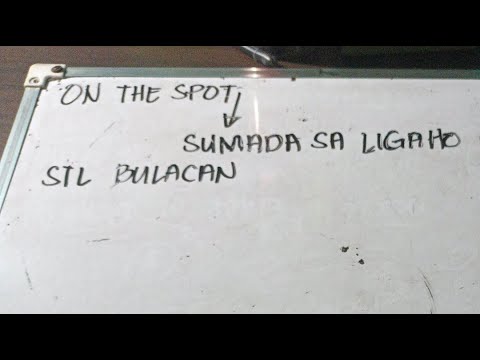 ON THE SPOT
SUMADA SA LIGAHO
STL BULACAN